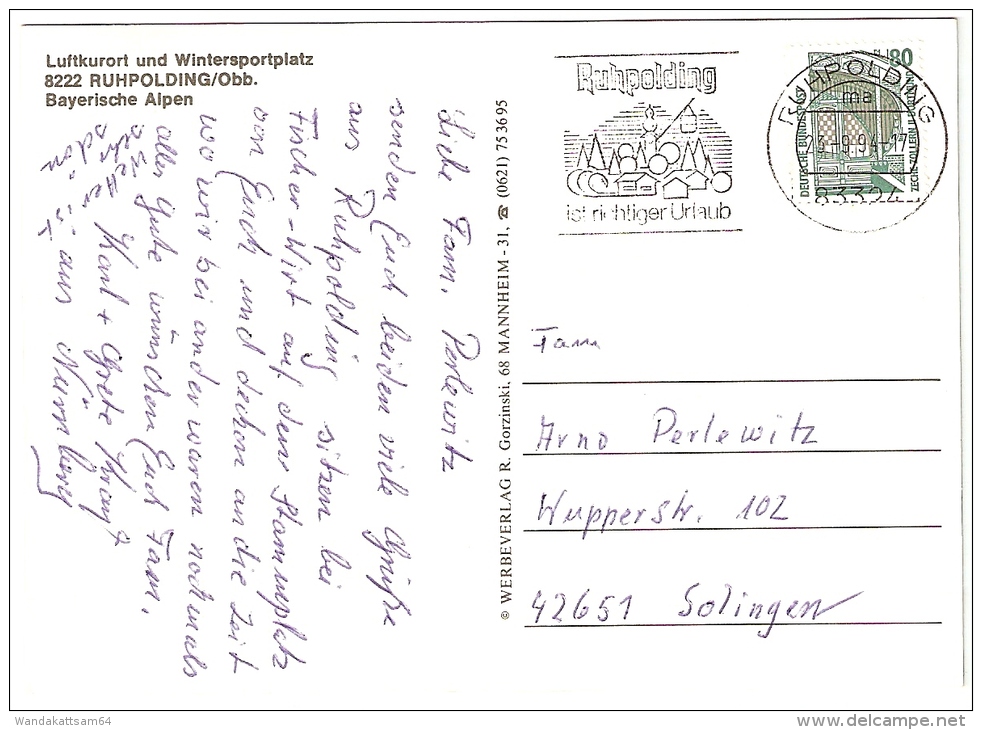 Luftkurort und Wintersportplatz
8222 RUHPOLDING/Obb.
Bayerische Alpen
Ruhpolding
ist richtiger Urlaub
RUHPOLDING
ma
23.-9.94-17
83324
80
DEUTSCHE BUNDESPOST
ZECHE ZOLLERN II DORTMUND
Liebe Fam. Perlewitz
senden Euch beiden viele Grüße
aus Ruhpolding sitzen bei
Fischer-Wirt auf dem Stammplatz
von Euch und denken an die Zeit
wo wir bei ander waren nochmals
alles gute wünschen Euch Fam.
Karl + Grete
aus Nürnberg
Wetter ist
schön
© WERBEVERLAG R. Gorzinski, 68 MANNHEIM - 31, ☎ (0621) 753695
Fam
Arno Perlewitz
Wupperstr. 102
42651 Solingen
Wandakattsam64
www.delcampe.net